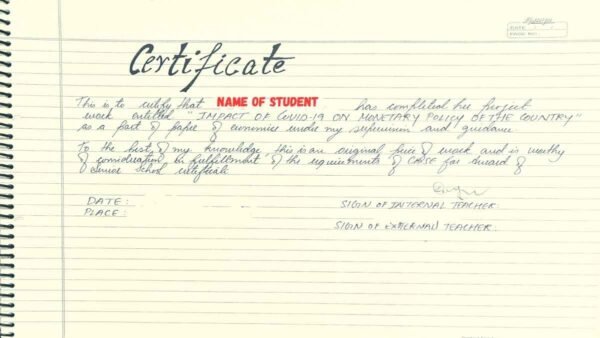 DATE :
PAGE NO. :
Certificate
This is to certify that NAME OF STUDENT has completed her project
work entitled "IMPACT OF COVID-19 ON MONETARY POLICY OF THE COUNTRY"
as a part of paper of economics under my supervision and guidance.
To the best of my knowledge, this is an original piece of work and is worthy
of consideration in fulfillment of the requirements of CBSE for award of
Senior School certificate
DATE :
PLACE :
SIGN OF INTERNAL TEACHER.
SIGN OF EXTERNAL TEACHER.